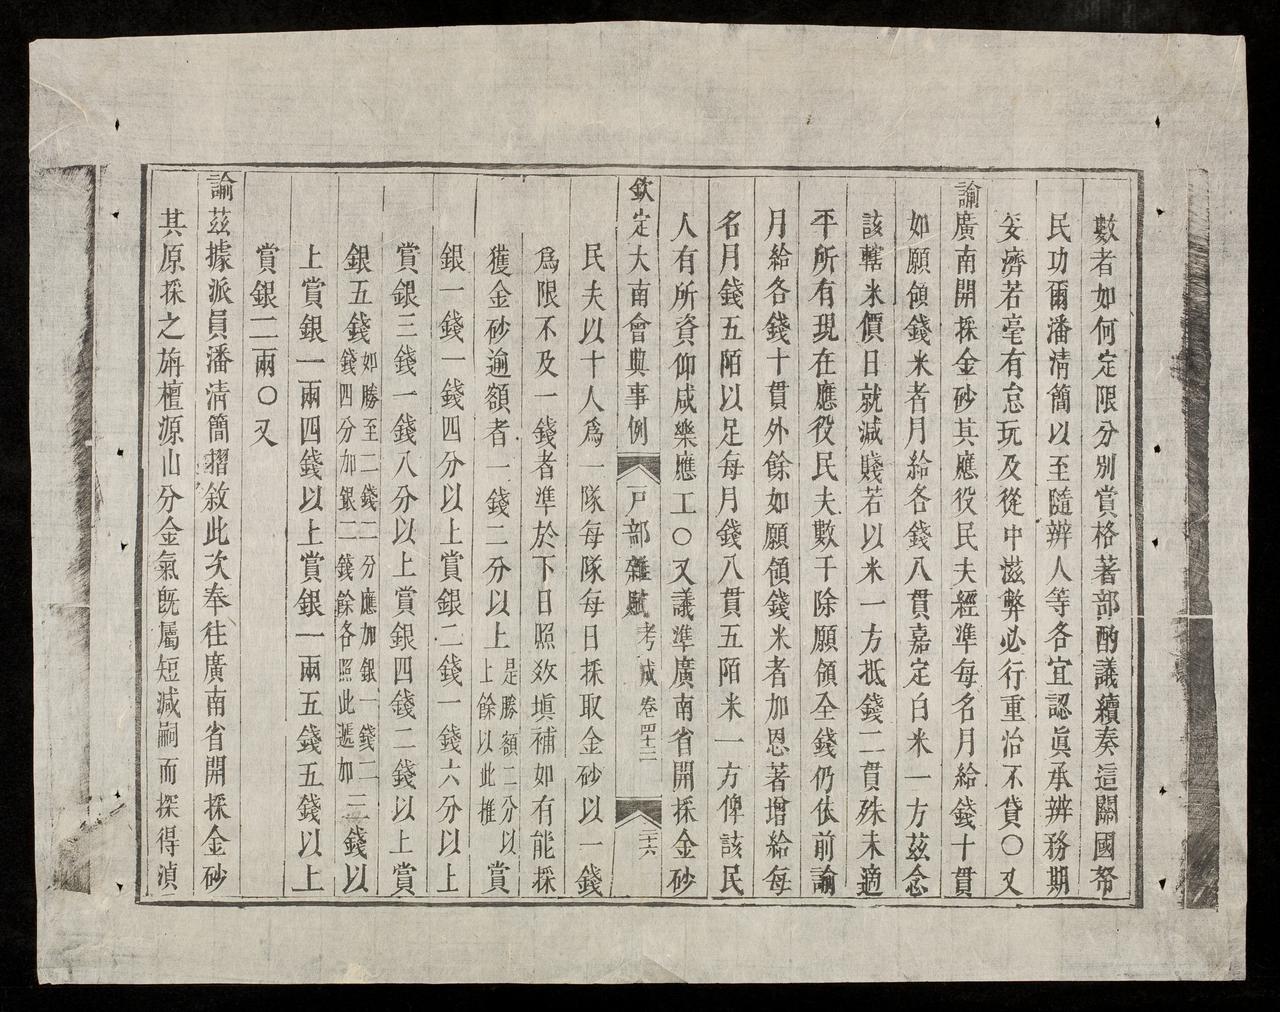 數者如何定限分別賞格著部酌議續奏這關國帑
民功爾潘清簡以至隨辨人等各宜認眞承辨務期
妥濟若毫有怠玩及從中滋弊必行重治不貸○又
諭廣南開採金砂其應役民夫經準每名月給錢十貫
如願領錢米者月給各錢八貫嘉定白米一方茲念
該轄米價日就減賤若以米一方抵錢二貫殊未適
平所有現在應役民夫數干除願領全錢仍依前諭
月給各錢十貫外餘如願領錢米者加恩著增給每
名月錢五陌以足每月錢八貫五陌米一方俾該民
人有所資仰咸樂應工○又議準廣南省開採金砂
欽定大南會典事例 戶部雜賦 考成 卷四十三 三十六
民夫以十人爲一隊每隊每日採取金砂以一錢
爲限不及一錢者準於下日照效塡補如有能採
獲金砂逾額者一錢二分以上是勝額二分以上餘以此推賞
銀一錢一錢四分以上賞銀二錢一錢六分以上
賞銀三錢一錢八分以上賞銀四錢二錢以上賞
銀五錢如勝至二錢二分應加銀一錢二錢四分加銀二錢餘各照此遞加三錢以
上賞銀一兩四錢以上賞銀一兩五錢五錢以上
賞銀二兩○又
諭茲據派員潘清簡摺敘此次奉往廣南省開採金砂
其原採之旃檀源山分金氣旣屬短減嗣而探得滇